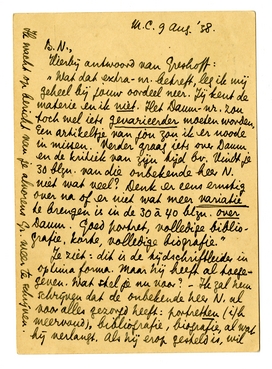 M.C. 9 Aug. '38.
B.N.,
Hierbij antwoord van Greshoff:
"Wat dat extra-nr. betreft, leg ik mij
geheel bij jouw oordeel neer. Jij kent de
materie en ik niet. Het Daum-nr. zou
toch wel iets gevarieerder moeten worden.
Een artikeltje van jou zou ik er noode
in missen. Verder graag iets over Daum
en de kritiek van zijn tijd bv. Vindt je
30 blzn. van die onbekende heer N.
niet wat veel? Denk er eens ernstig
over na of er niet wat meer variatie
te brengen is in de 30 à 40 blzn. over
Daum. Goed portret, volledige biblio-
grafie, korte, volledige biografie."
Je ziet: dit is de tijdschriftleider in
optima forma. Maar hij heeft al toege-
geven. Wat stel je nu voor? - Ik zal hem
schrijven dat de onbekende heer N. al
voor alles gezorgd heeft: portretten (i/h
meervoud), bibliografie, biografie, al wat
hij verlangt. Als hij erop gesteld is, wil
Ik wacht op bericht van je alvorens Gr. weer te schrijven.